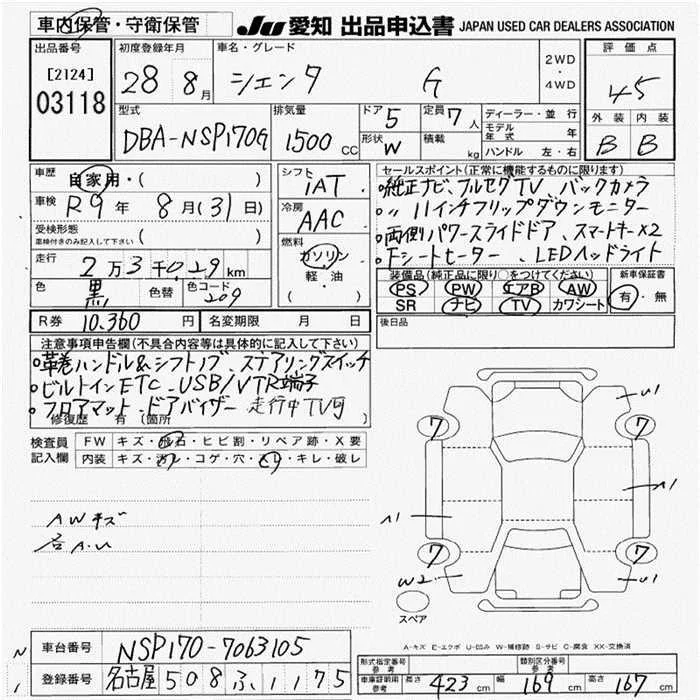 車内保管・守衛保管 JU 愛知 出品申込書 JAPAN USED CAR DEALERS ASSOCIATION
出品番号 初度登録年月 車名・グレード 2WD ・ 4WD 評価点
[2124] 03118 28 8月 シエンタ G 4.5
型式 排気量 ドア 5 定員 7人 ディーラー・並行 外装 内装
DBA-NSP170G 1500 CC 形状 W 積載 kg モデル年式 年 B B
ハンドル 左・右
車歴 自家用・( ) シフト IAT セールスポイント(正常に機能するものに限ります)
車検 R9年 8月(31日) 冷房 AAC
・純正ナビ、フルセグTV、バックカメラ
・〃 11インチフリップダウンモニター
受検形態 ( )
車検付きのみ記入して下さい
・両側パワースライドドア、スマートキーX2
走行 2万3千029km 燃料 ガソリン ・ 軽・油 ( )
・Fシートヒーター、LEDヘッドライト
色 黒 色替 色コード 209
装備品(純正品に限り○をつけてください) 新車保証書
PS PW エアB AW 有・無
SR ナビ TV カワシート
R券 10,360円 名変期限 月 日 後日品
注意事項申告欄(不具合内容等は具体的に記入して下さい)
・革巻ハンドル&シフトノブ、ステアリングスイッチ
・ビルトインETC、USB/VTR端子
・フロアマット、ドアバイザー 走行中TV可
修復歴 有(箇所 )
検査員記入欄 FW キズ・飛石・ヒビ割・リペア跡・X要
内装 キズ・汚レ・コゲ・穴・スレ・キレ・破レ
U1
7 7
A1
A1
AWキズ
各A.U
7 7
W2 U1
スペア
A-キズ E-エクボ U-凹み W-補修跡 S-サビ C-腐食 XX-交換済
車台番号 NSP170-7063105
登録番号 名古屋 508 ふ 1175
形式指定番号 参考 類別区分番号 参考
車庫証明用 参考 長さ 423cm 幅 169cm 高さ 167cm